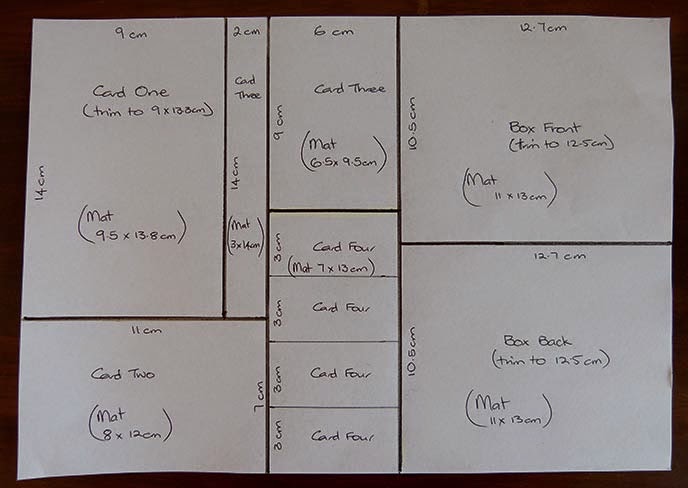 9 cm
Card One
(trim to 9 x 13.3cm)
14 cm
(Mat
9.5 x 13.8cm)
2 cm
Card
Three
14 cm
(Mat
3 x 14cm)
6 cm
9 cm
Card Three
(Mat
6.5 x 9.5cm)
3 cm
Card Four
(Mat 7 x 13cm)
3 cm
Card Four
3 cm
Card Four
3 cm
Card Four
12.7cm
10.5 cm
Box Front
(trim to 12.5cm)
(Mat
11 x 13cm)
11 cm
Card Two
7 cm
(Mat
8 x 12cm)
12.7 cm
10.5cm
Box Back
(trim to 12.5cm)
(Mat
11 x 13cm)